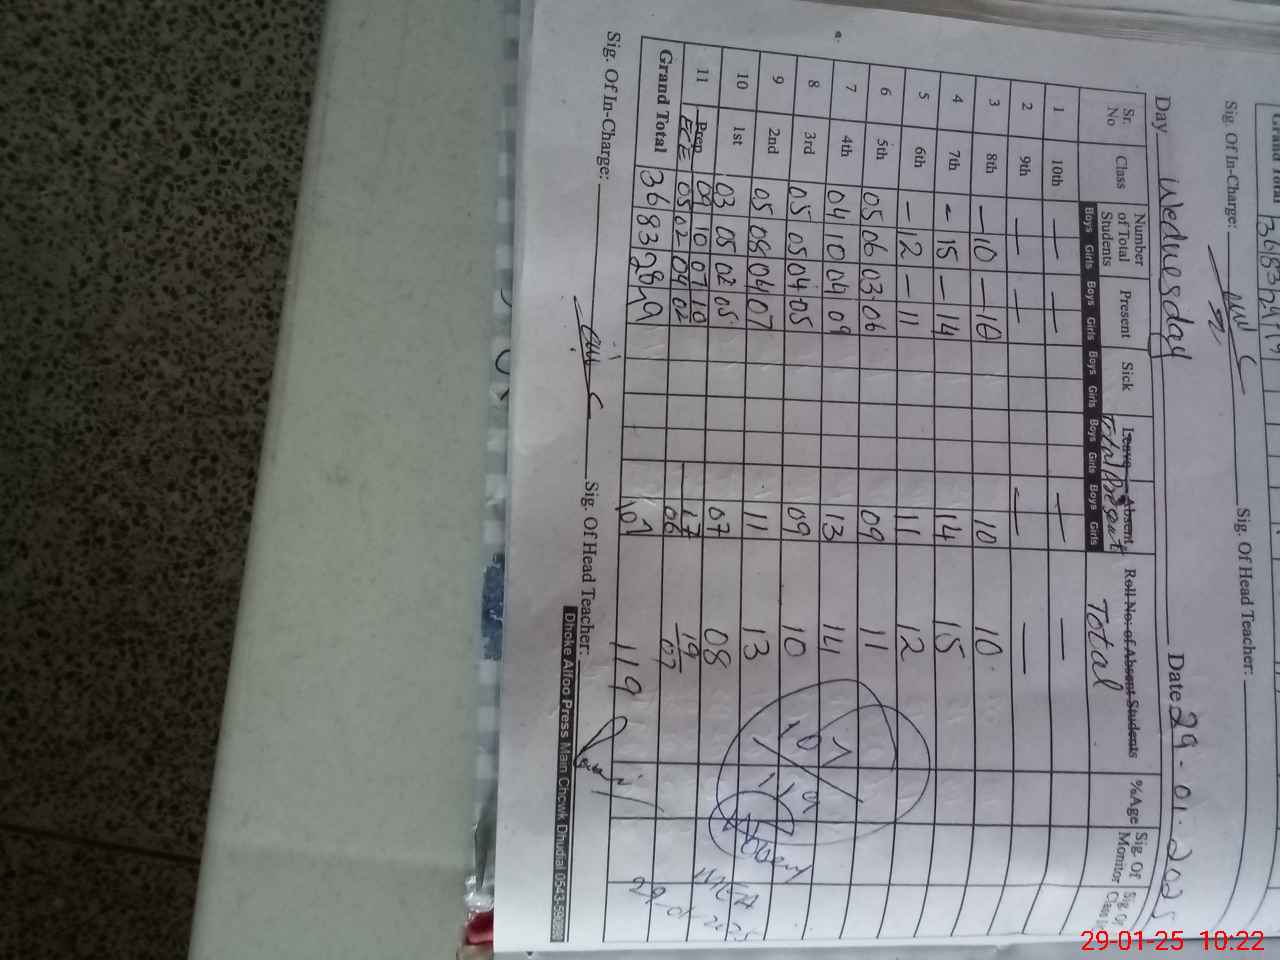 Sig. Of In-Charge: Sig. Of Head Teacher:
Day Wednesday Date 29-01-2025
Sr. No Class Number of Total Students Present Sick Leave Absent Roll No: of Absent Students %Age Sig. Of Monitor Sig. Of
Total Present Total
Boys Girls Boys Girls Boys Girls Boys Girls Boys Girls
1 10th — — — —
2 9th — — — —
3 8th — 10 — 10 10 10
4 7th — 15 — 14 14 15
5 6th — 12 — 11 11 12
6 5th 05 06 03 06 09 11
7 4th 04 10 04 09 13 14
8 3rd 05 05 04 05 09 10
9 2nd 05 08 04 07 11 13
10 1st 03 05 02 05 07 08
11 Prep 09 10 07 10 17 19
ECE 05 02 04 02 06 07
Grand Total 36 83 28 79 107 119
107/119
Sig. Of In-Charge: Sig. Of Head Teacher:
Dhoke Alfoo Press Main Chowk Dhudial 0543-
29-01-2025
29-01-25 10:22